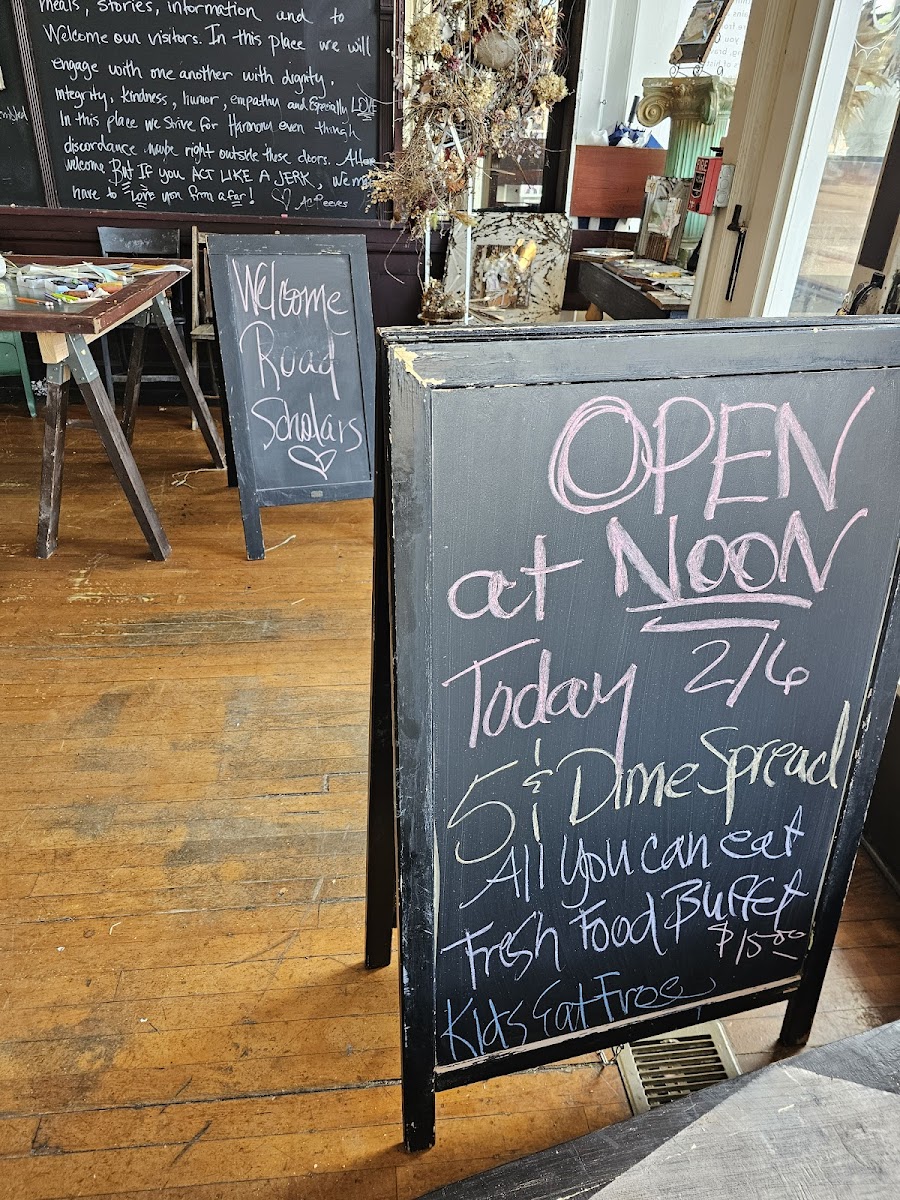 meals, stories, information and to
Welcome our visitors. In this place we will
engage with one another with dignity,
integrity, kindness, humor, empathy and Especially LOVE
In this place we strive for Harmony even though
discordance maybe right outside these doors. All are
welcome But If you ACT LIKE A JERK, We may
have to Love you from afar! ACReeves
Welcome
Road
Scholars
OPEN
at NOON
Today 2/6
5 & Dime Spread
All you can eat
Fresh Food Buffet
$15.00
Kids Eat Free